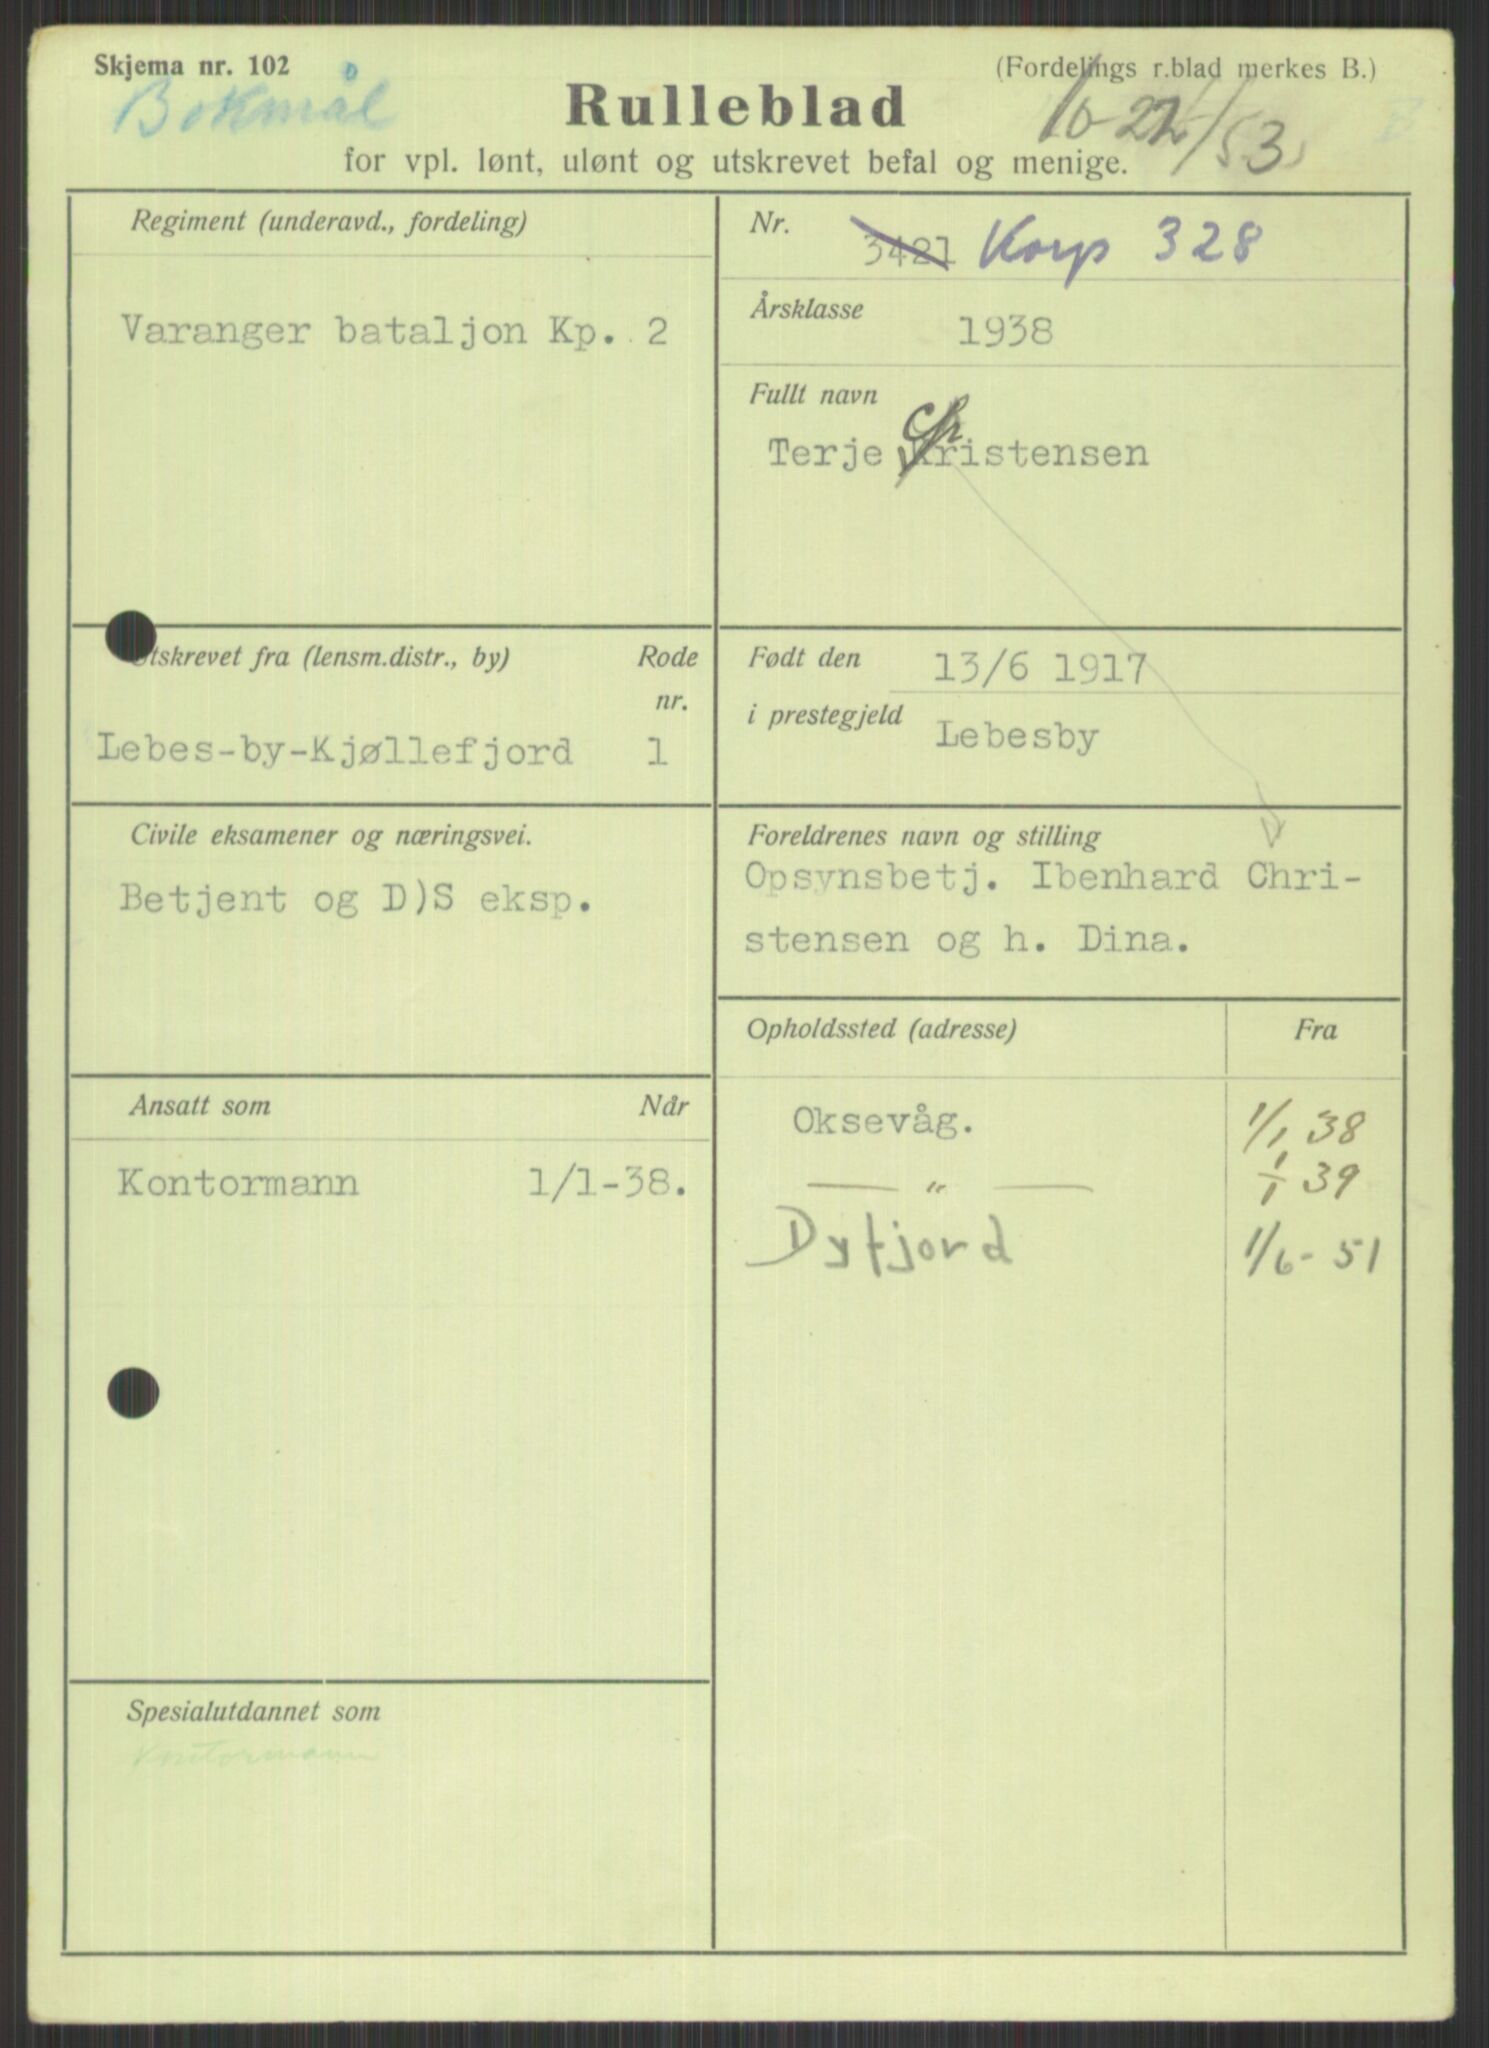 Skjema nr. 102
(Fordelings r.blad merkes B.)
Bokmål
Rulleblad
for vpl. lønt, ulønt og utskrevet befal og menige.
Regiment (underavd., fordeling)
Varanger bataljon Kp. 2
Nr.
3421 Korp 328
Årsklasse
1938
Fullt navn
Ch
Terje Kristensen
Utskrevet fra (lensm.distr., by)
Rode
nr.
Lebes-by-Kjøllefjord 1
Født den 13/6 1917
i prestegjeld Lebesby
Civile eksamener og næringsvei.
Betjent og D)S eksp.
Foreldrenes navn og stilling
Opsynsbetj. Ibenhard Chri-
stensen og h. Dina.
Ansatt som Når
Kontormann 1/1-38.
Opholdssted (adresse) Fra
Oksevåg. 1/1 38
— „ — 1/1 39
Dyfjord 1/6- 51
Spesialutdannet som
Kontormann